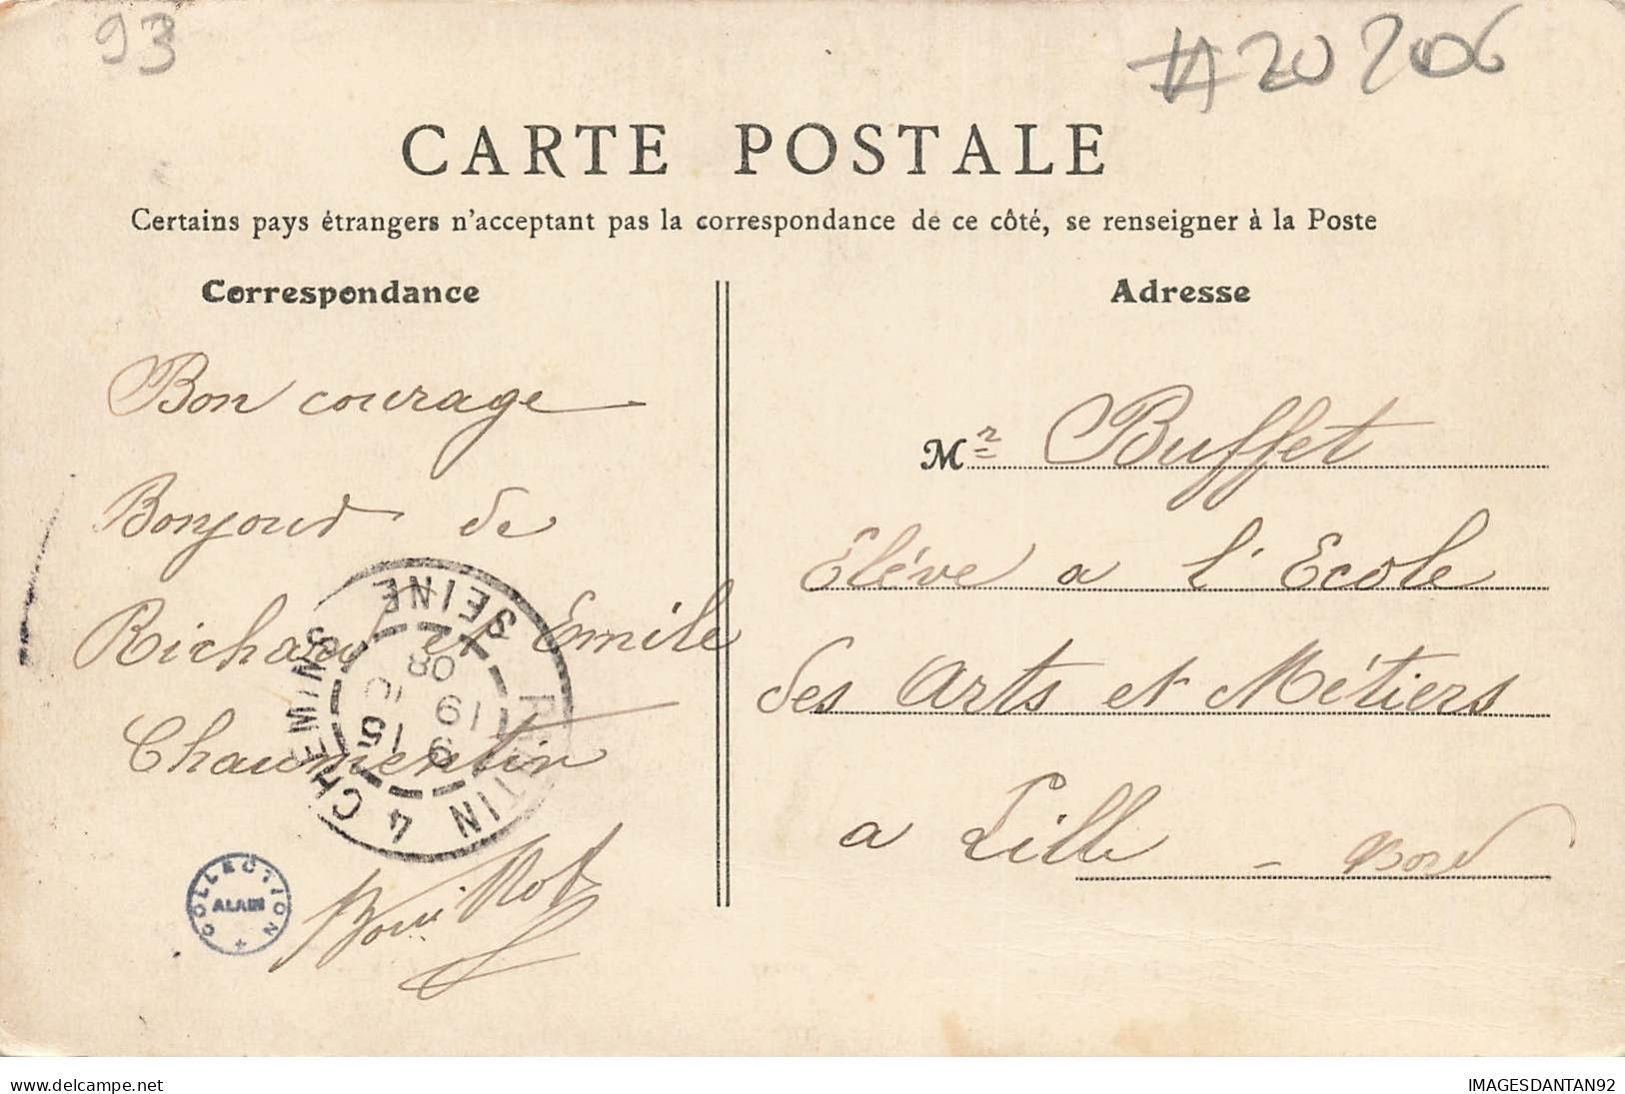 93
#20206
CARTE POSTALE
Certains pays étrangers n'acceptant pas la correspondance de ce côté, se renseigner à la Poste
Correspondance
Bon courage
Bonjour de
Richard et Emile
Chaumentin
Adresse
Mr Buffet
Eléve a l'Ecole
des Arts et Métiers
a Lille - Nord
PANTIN 4 CHEMINS SEINE
9 15
19 10
08
COLLECTION
ALAIN
delcampe.net
IMAGESDANTAN92